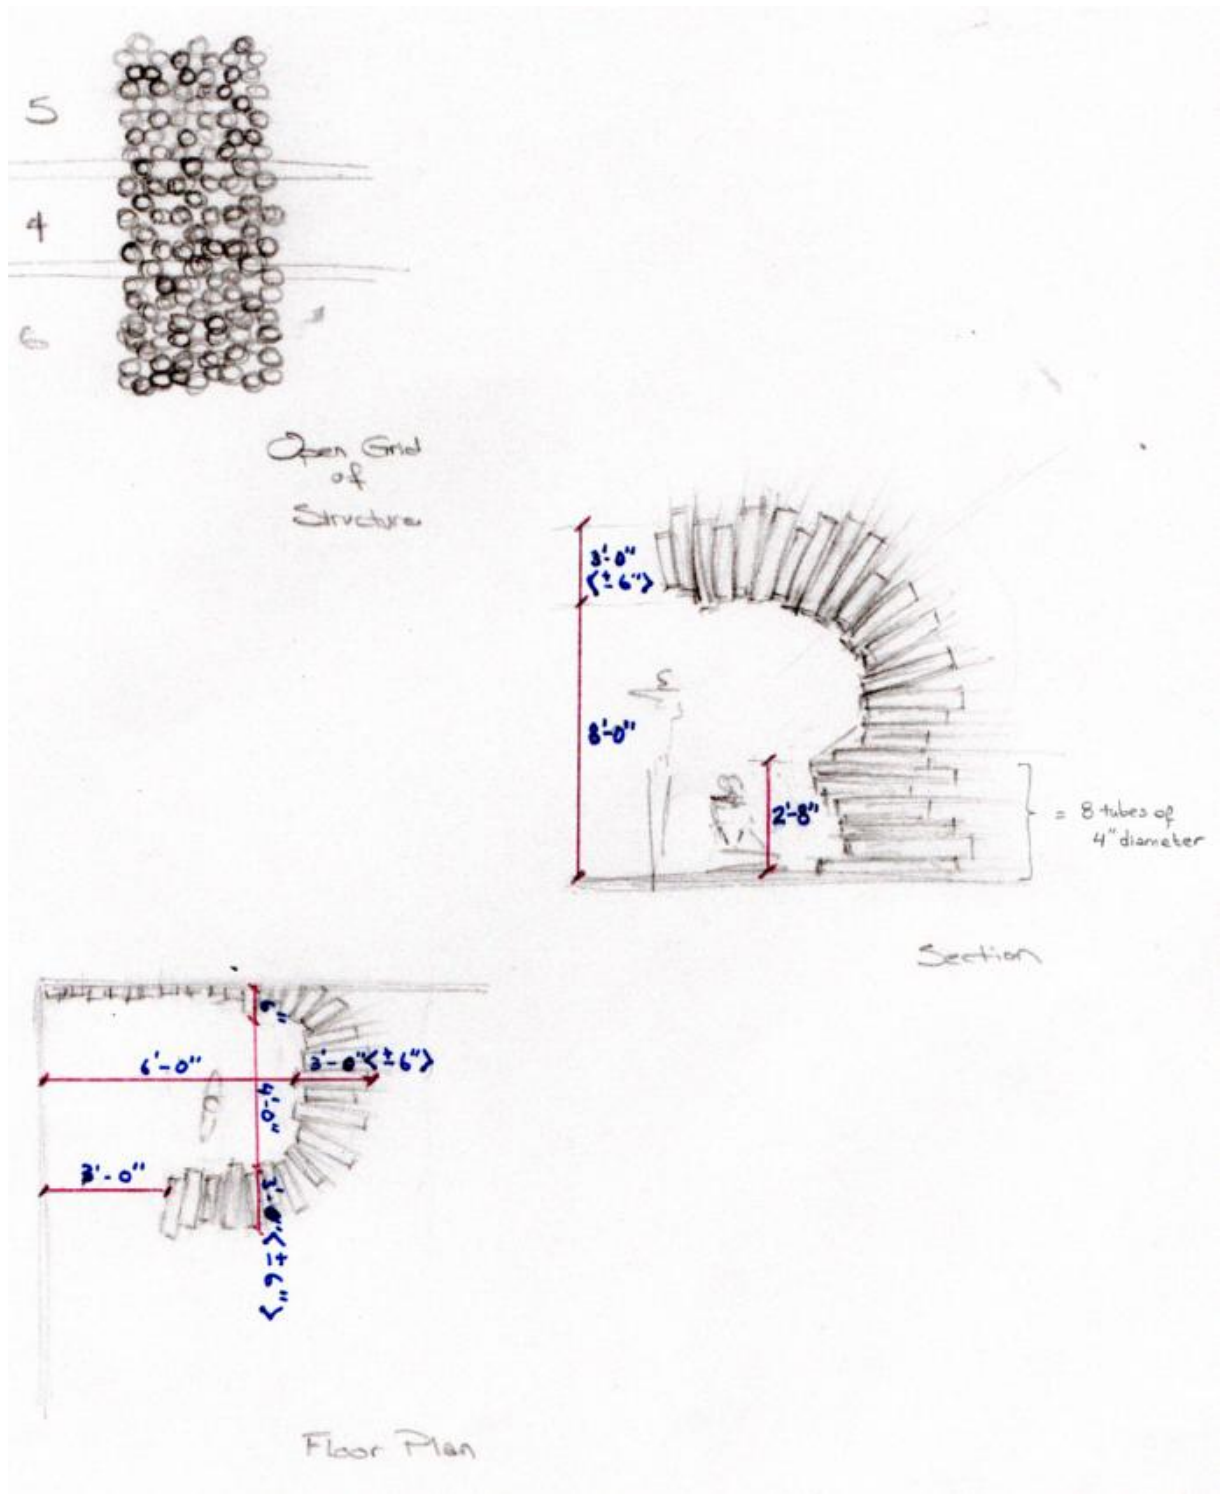 5
4
6
Open Grid
of
Structure
3'-0"
<±6">
8'-0"
2'-8"
= 8 tubes of
4" diameter
Section
6"
6'-0"
3'-0"<±6">
4'-0"
3'-0"
3'-0"<±6">
Floor Plan